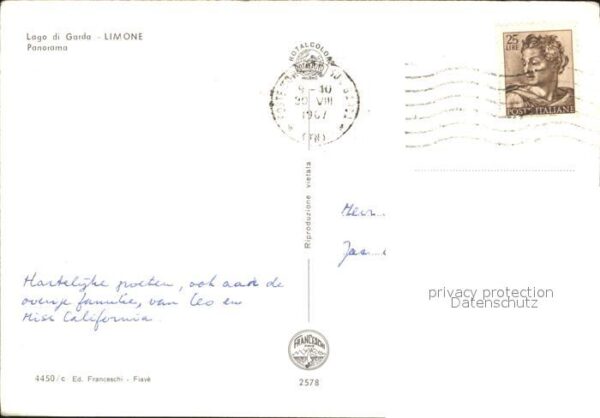 Lago di Garda - LIMONE
Panorama
ROTALCOLOR
25
LIRE
POSTE ITALIANE
9-10
30 VIII
1967
Riproduzione vietata
Hartelijke groeten, ook aan de
overige familie, van Leo en
Miss California.
privacy protection
Datenschutz
FRANCESCHI
4450/c Ed. Franceschi - Fiavè
2578